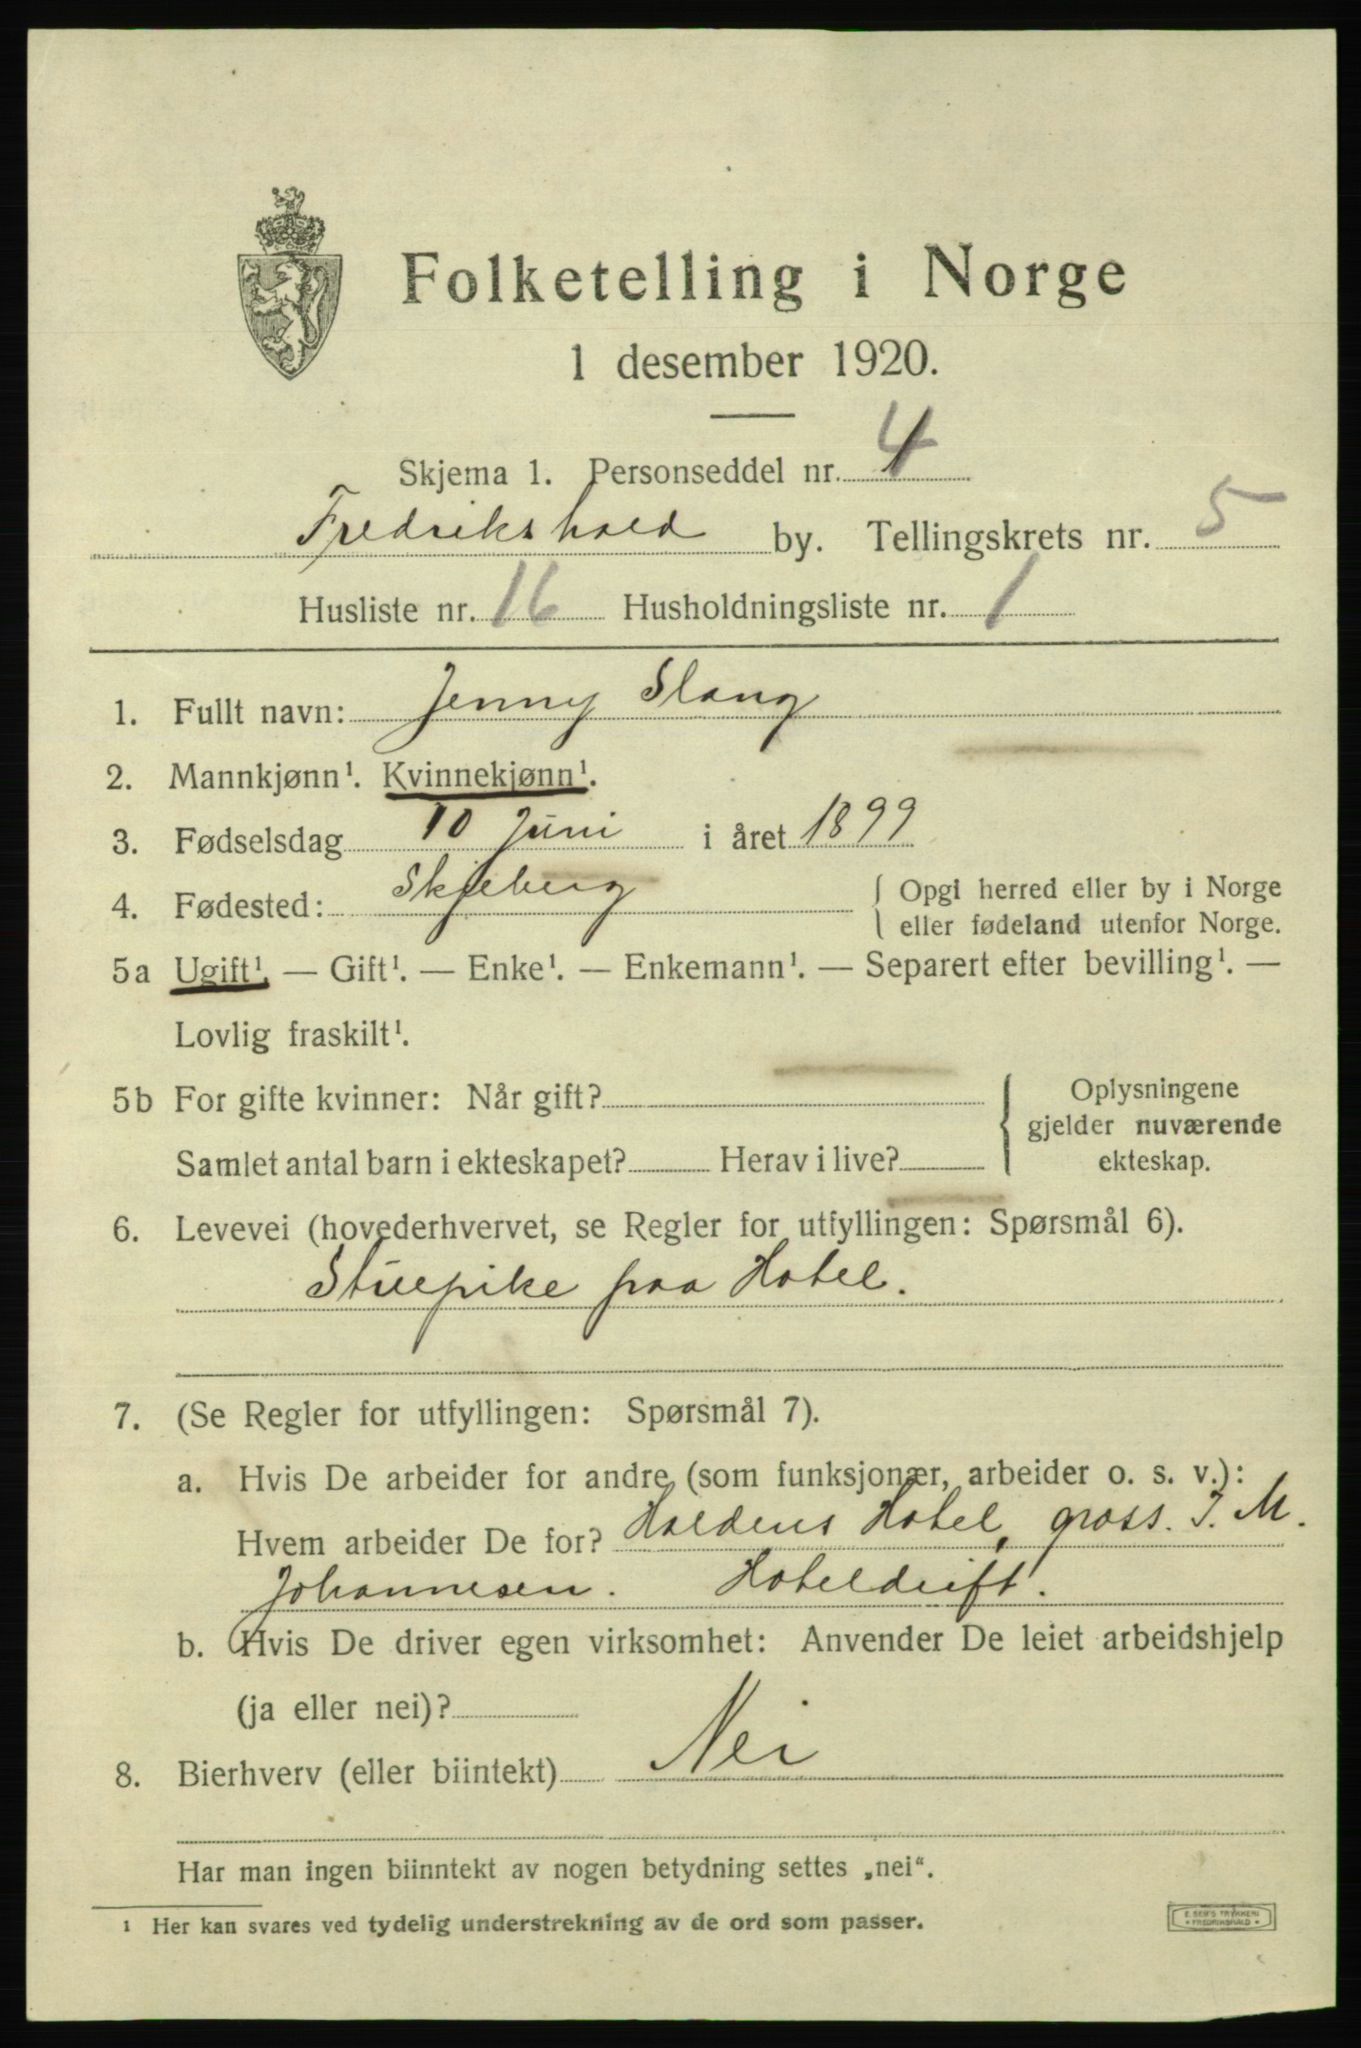 Folketelling i Norge
1 desember 1920.
Skjema 1. Personseddel nr. 4
Fredrikshald by. Tellingskrets nr. 5
Husliste nr. 16 Husholdningsliste nr. 1
1. Fullt navn: Jenny Slang
2. Mannkjønn¹. Kvinnekjønn¹.
3. Fødselsdag 10 Juni i året 1899
4. Fødested: Skjeberg { Opgi herred eller by i Norge
eller fødeland utenfor Norge.
5a Ugift¹. — Gift¹. — Enke¹. — Enkemann¹. — Separert efter bevilling¹. —
Lovlig fraskilt¹.
5b For gifte kvinner: Når gift? { Oplysningene
gjelder nuværende
Samlet antal barn i ekteskapet? Herav i live? ekteskap.
6. Levevei (hovederhvervet, se Regler for utfyllingen: Spørsmål 6).
Stuepike paa Hotel.
7. (Se Regler for utfyllingen: Spørsmål 7).
a. Hvis De arbeider for andre (som funksjonær, arbeider o. s. v.):
Hvem arbeider De for? Haldens Hotel, gross. J. M.
Johannesen. Hoteldrift.
b. Hvis De driver egen virksomhet: Anvender De leiet arbeidshjelp
(ja eller nei)?
8. Bierhverv (eller biintekt) Nei
Har man ingen biinntekt av nogen betydning settes „nei“.
¹ Her kan svares ved tydelig understrekning av de ord som passer.
E. SEM'S TRYKKERI
FREDRIKSHALD